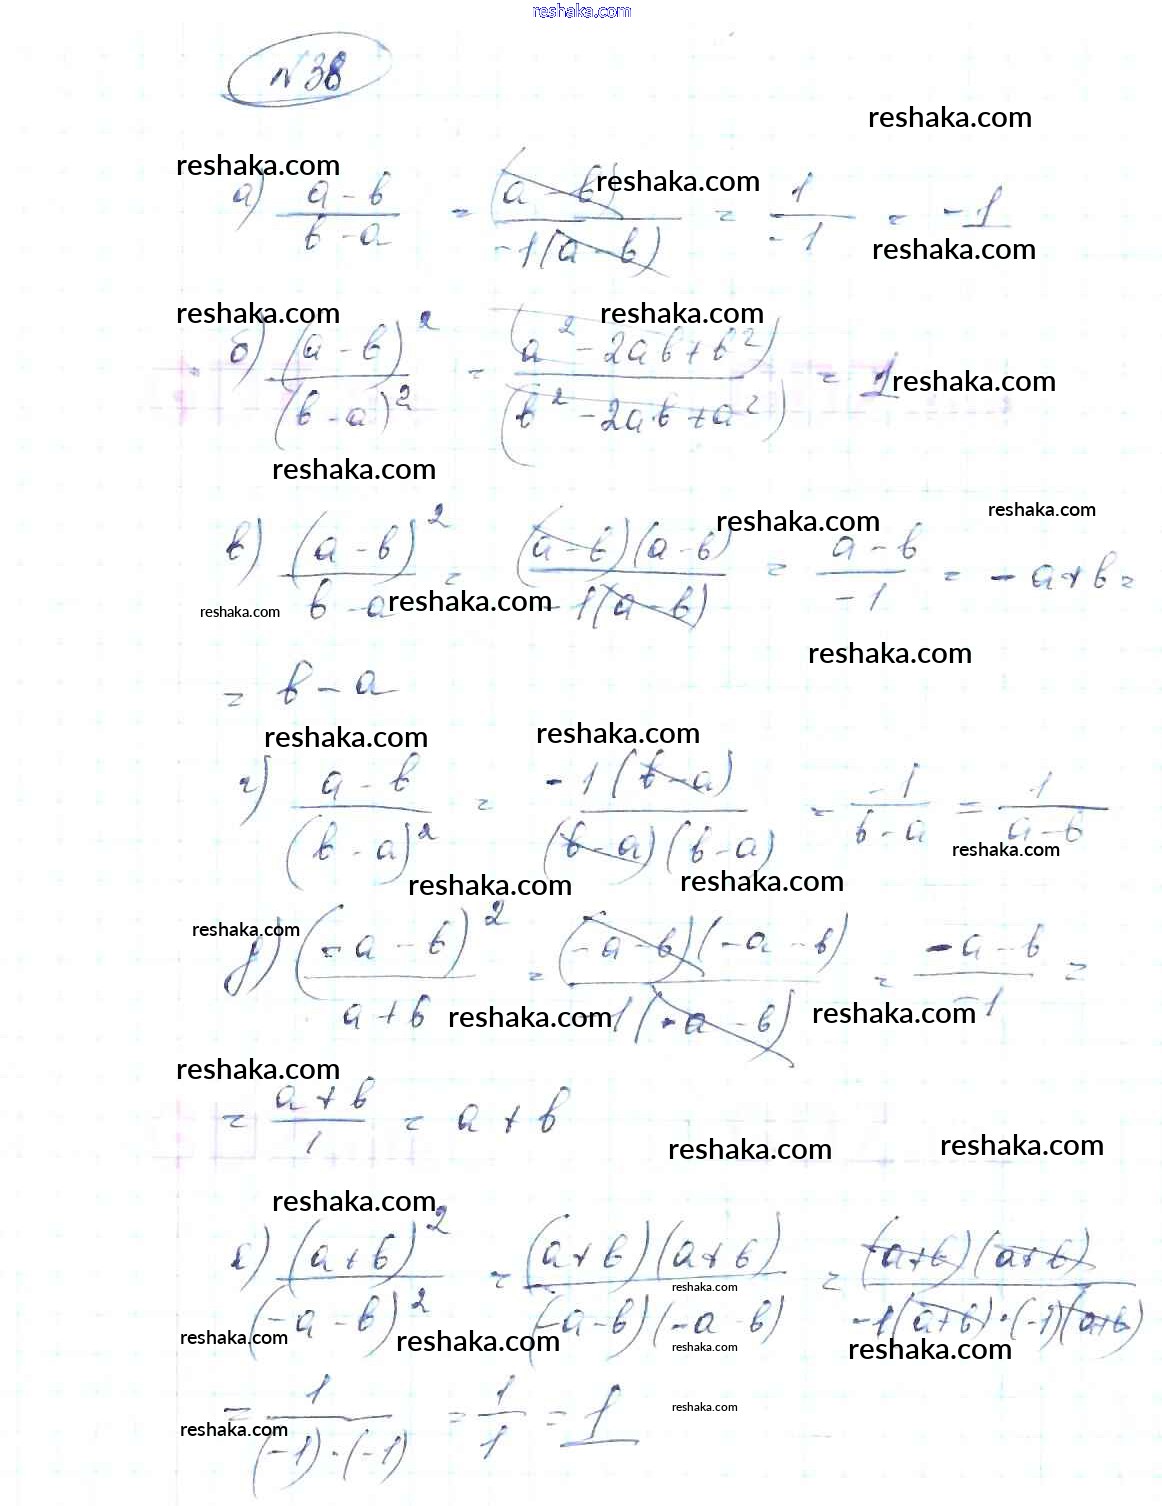 reshaka.com
№38
reshaka.com
reshaka.com
reshaka.com
а) (a - b)/(b - a) = (a - b)/(-1(a - b)) = 1/(-1) = -1
reshaka.com
reshaka.com
reshaka.com
б) (a - b)²/(b - a)² = (a² - 2ab + b²)/(b² - 2ab + a²) = 1
reshaka.com
reshaka.com
reshaka.com
reshaka.com
в) (a - b)²/(b - a) = (a - b)(a - b)/(-1(a - b)) = (a - b)/(-1) = - a + b =
reshaka.com
reshaka.com
reshaka.com
= b - a
reshaka.com
reshaka.com
г) (a - b)/(b - a)² = -1(b - a)/((b - a)(b - a)) = -1/(b - a) = 1/(a - b)
reshaka.com
reshaka.com
reshaka.com
reshaka.com
д) (-a - b)²/(a + b) = (-a - b)(-a - b)/(-1(-a - b)) = (-a - b)/(-1) =
reshaka.com
reshaka.com
reshaka.com
= (a + b)/1 = a + b
reshaka.com
reshaka.com
reshaka.com
е) (a + b)²/(-a - b)² = (a + b)(a + b)/((-a - b)(-a - b)) = (a + b)(a + b)/(-1(a + b)·(-1)(a + b))
reshaka.com
reshaka.com
reshaka.com
reshaka.com
reshaka.com
= 1/((-1)·(-1)) = 1/1 = 1
reshaka.com
reshaka.com